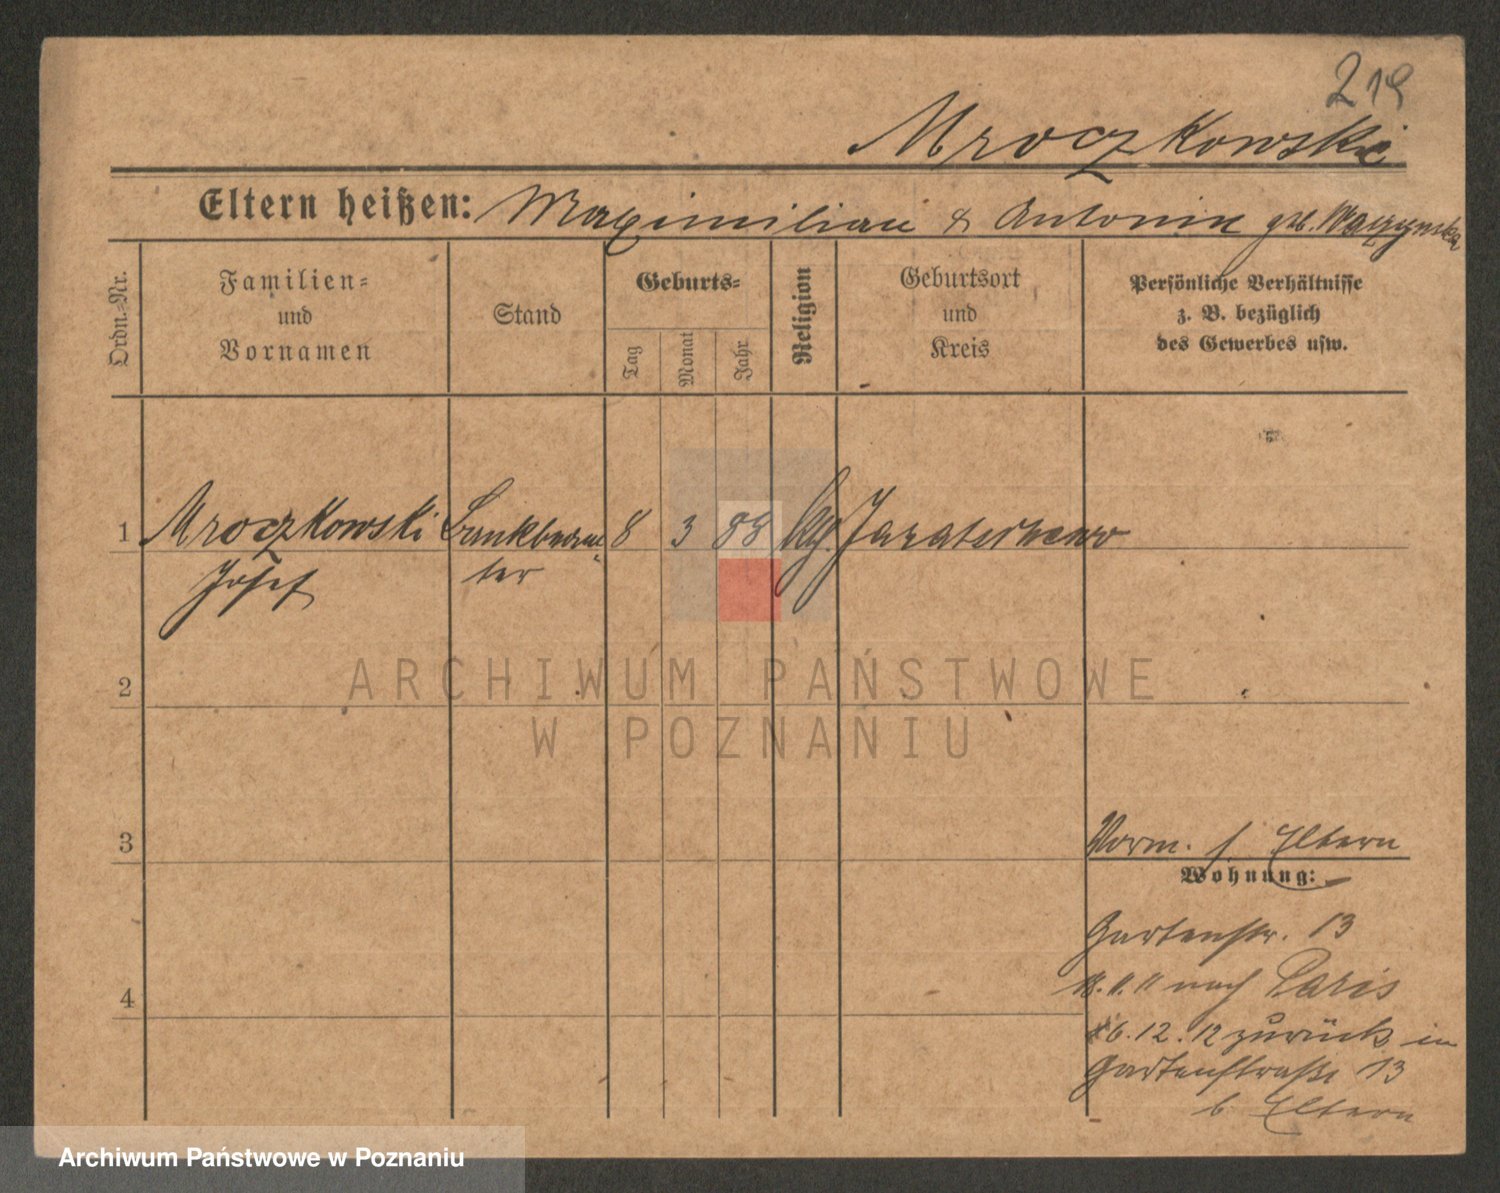 219
Mroczkowski
Eltern heißen: Maximilian & Antonin geb.
Ordn.-Nr.
Familien-
und
Vornamen
Stand
Geburts-
Tag
Monat
Jahr
Religion
Geburtsort
und
Kreis
Persönliche Verhältnisse
z. B. bezüglich
des Gewerbes usw.
1 Mroczkowski Bankbeam- 8 3 88
Josef ter
2
ARCHIWUM PAŃSTWOWE
W POZNANIU
3
Vorm. s. Eltern
Wohnung:
Gartenstr. 13
4
18. 11. 11 nach Paris
6. 12. 12 zurück in
Gartenstraße 13
b Eltern
Archiwum Państwowe w Poznaniu